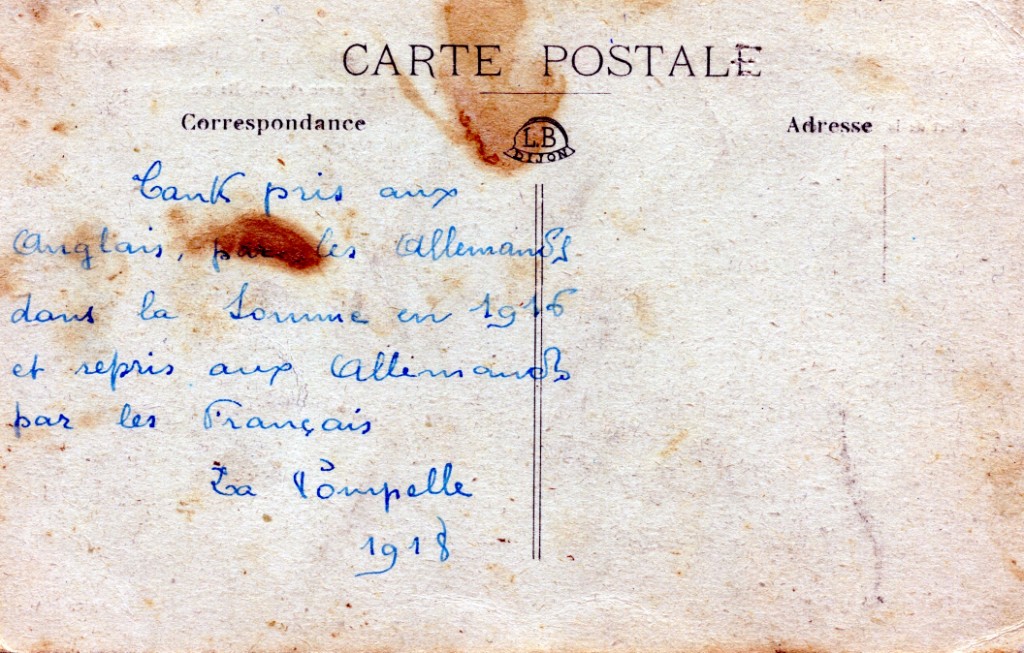 CARTE POSTALE
Correspondance
Adresse
L.B
DIJON
Tank pris aux
Anglais, par les Allemands
dans la Somme en 1916
et repris aux Allemands
par les Français
La Pompelle
1918